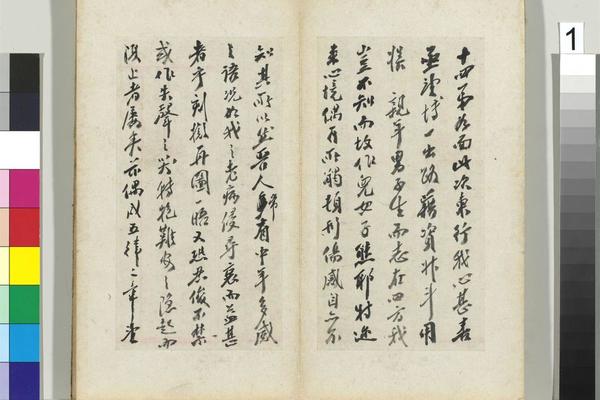 十四弟 面此次東行我心甚喜
亟望博一出路藉資升斗用
慰親年男子生而志在四方我
豈不知而故作兒女子態耶特邇
來心境偶有所觸頓形傷感自亦不
知其所以然昔人 有中年多感
之語況如我之老病侵尋衰而益甚
者乎刻擬再圖一晤又恐 不禁
或作失聲之哭特抱難 之隱起而
復止者屢矣茲偶成五律二章
1